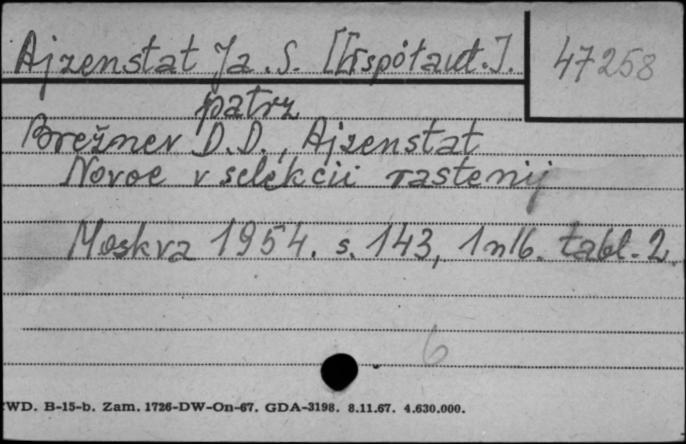 Ajzenstat Ja. S. [Współaut.].
47258
patrz
Brežnev D.D., Ajzenstat
Novoe v selekcii rastenij
Moskva 1954. s. 143, 1 nlb. tabl. 2.
6
WD. B-15-b. Zam. 1726-DW-On-67. GDA-3198. 8.11.67. 4.630.000.